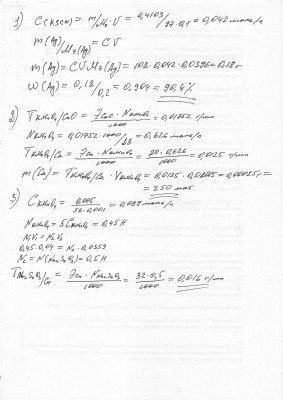 1) C(KSCN) = m/M·V = 0,4103/97·0,1 = 0,042 моль/л
m(Ag)/M(Ag) = CV
m(Ag) = CVM(Ag) = 108·0,042·0,0396 = 0,18г
ω(Ag) = 0,18/0,2 = 0,904 = 90,4%
2) T KMnO₄/CaO = ЭCaO·NKMnO₄/1000 = 0,01752 г/мл
NKMnO₄ = 0,01752·1000/28 = 0,626 моль/л
TKMnO₄/Ca = ЭCa·NKMnO₄/1000 = 20·0,626/1000 = 0,0125 г/мл
m(Ca) = TKMnO₄/Ca · VKMnO₄ = 0,0125·
= 250 мкг
3) CKMnO₄ = 0,005/56·0,001 = моль/л
NKMnO₄ = 5CKMnO₄ = 0,45Н
N₁V₁ = N₂V₂
0,45·0,04 = N₂·0,0359
N₂ = N(Na₂S₂O₃) = 0,5Н
TNa₂S₂O₃/Cu = ЭCu·NNa₂S₂O₃/1000 = 32·0,5/1000 = 0,016 г/мл